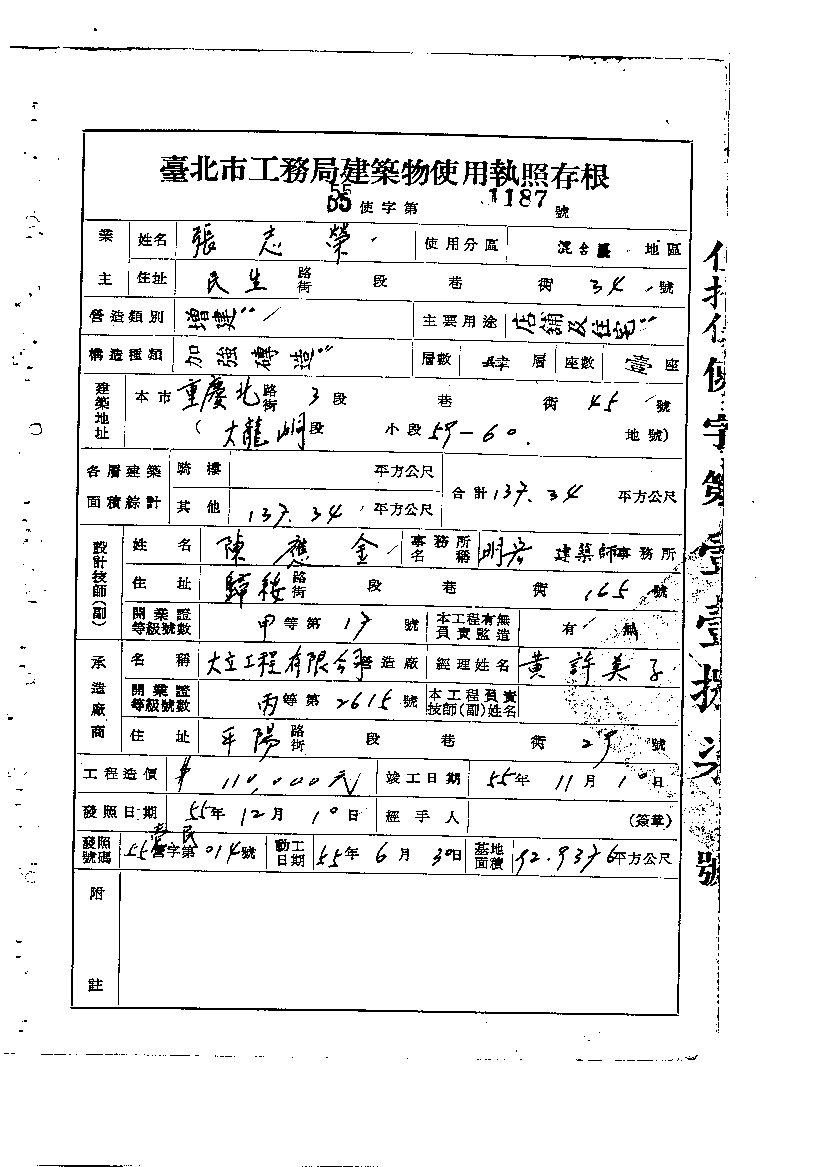 臺北市工務局建築物使用執照存根
55
55使字第1187號
業主 姓名 張志榮 使用分區 混合區 地區
住址 民生路街 段 巷 衖 34號
營造類別 增建 主要用途 店舖及住宅
構造種類 加強磚造 層數 肆層 座數 壹座
建築地址 本市重慶北路街3段 巷 衖 45號
(大龍峒段 小段59-60. 地號)
各層建築面積綜計 騎樓 平方公尺 合計137.34平方公尺
其他 137.34平方公尺
設計技師(副) 姓名 陳應金 事務所名稱 明 建築師事務所
住址 路街 段 巷 衖 165號
開業證等級號數 甲等第17號 本工程有無負責監造 有 無
承造廠商 名稱 大立工程有限公司營造廠 經理姓名 黃許美子
開業證等級號數 丙等第2615號 本工程負責技師(副)姓名
住址 平陽路街 段 巷 衖 29號
工程造價 110,000元 竣工日期 55年11月10日
發照日期 55年12月10日 經手人 (簽章)
發照號碼 55營民字第014號 動工日期 55年6月30日 基地面積 92.9376平方公尺
附註
使字第壹壹捌柒號